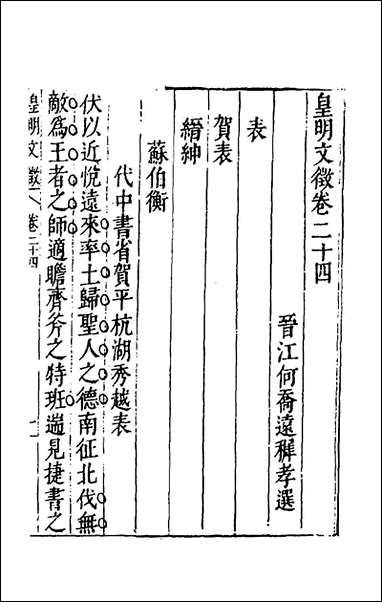 皇明文徵卷二十四
晉江何喬遠穉孝選
表
賀表
縉紳
蘇伯衡
代中書省賀平杭湖秀越表
伏以近悅遠來率土歸聖人之德南征北伐無
敵為王者之師適瞻齊斧之特班遄見捷書之
皇明文徵 卷二十四 一